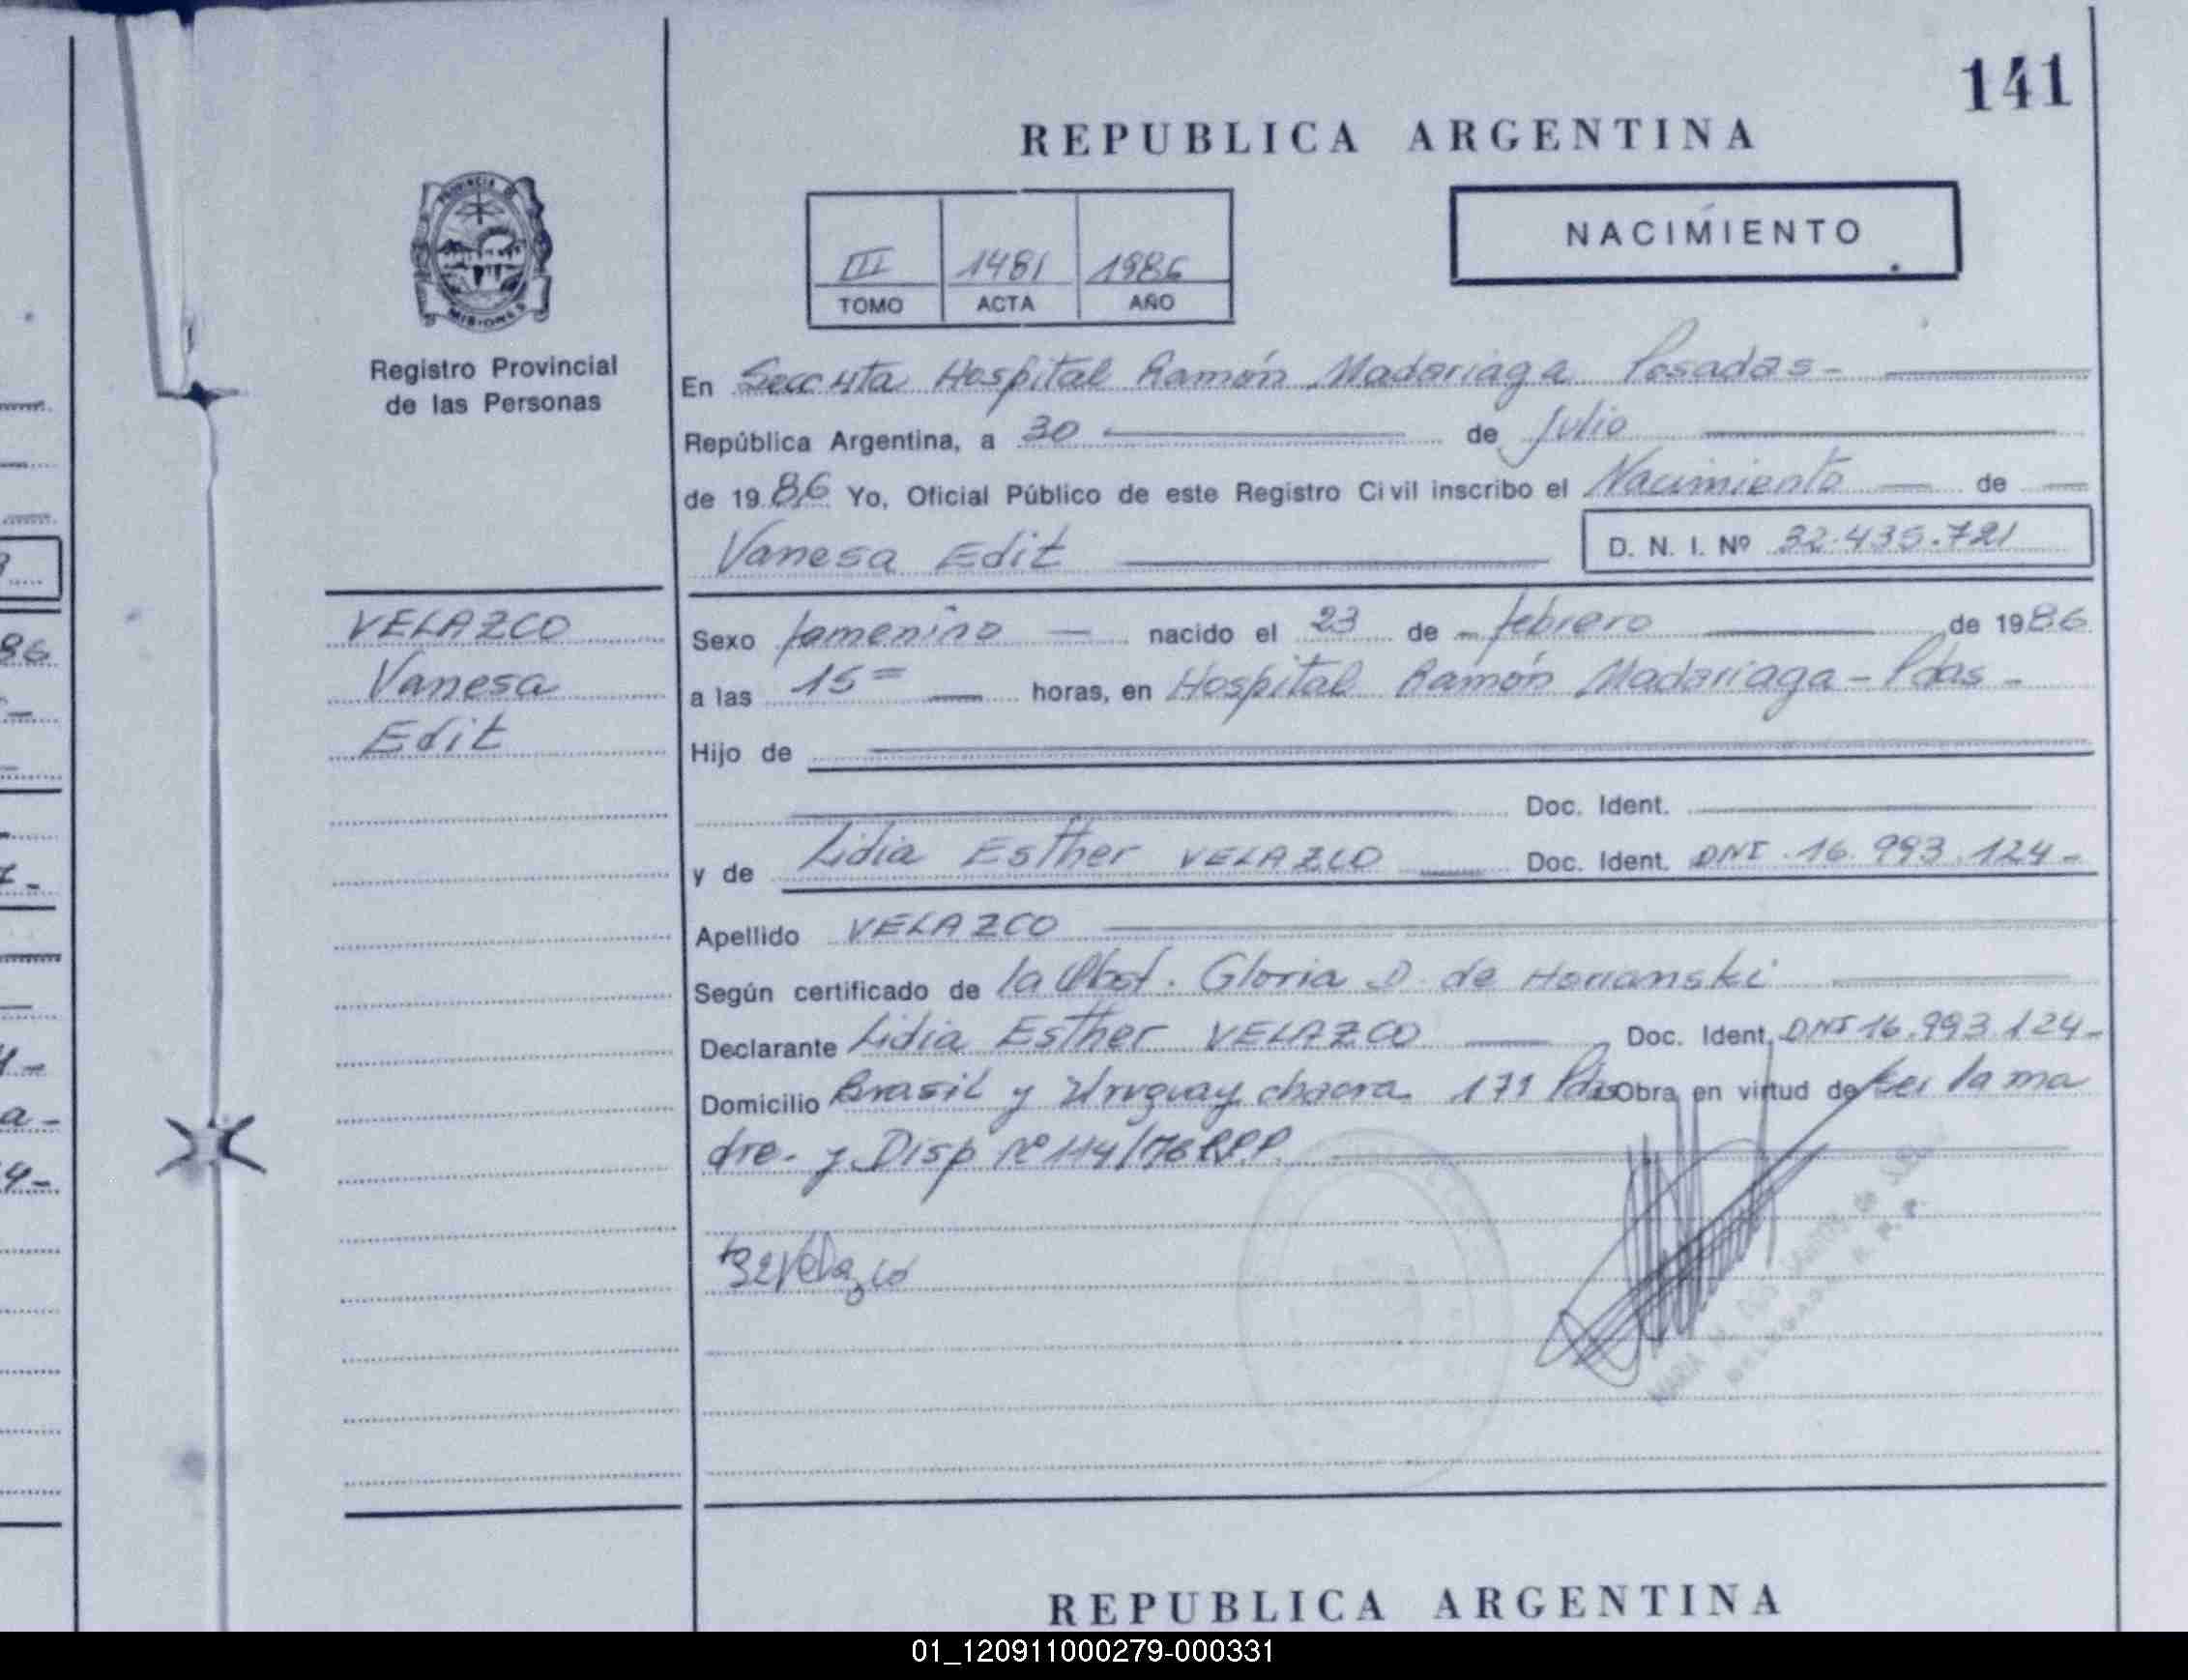 141
REPUBLICA ARGENTINA
NACIMIENTO
III 1481 1986
TOMO ACTA AÑO
PROVINCIA DE
MISIONES
Registro Provincial
de las Personas
En Secc 4ta Hospital Ramón Madariaga Posadas-
República Argentina, a 30 de Julio
de 1986 Yo, Oficial Público de este Registro Civil inscribo el Nacimiento de
Vanesa Edit D. N. I. Nº 32.435.721
VELAZCO
Vanesa
Edit
Sexo femenino nacido el 23 de febrero de 1986
a las 15= horas, en Hospital Ramón Madariaga - Pdas -
Hijo de
Doc. Ident.
y de Lidia Esther VELAZCO Doc. Ident. DNI 16.993.124-
Apellido VELAZCO
Según certificado de la Obst. Gloria D. de
Declarante Lidia Esther VELAZCO Doc. Ident. DNI 16.993.124-
Domicilio Brasil y Uruguay chacra 171 Pdas Obra en virtud de ser la ma
dre. y Disp Nº 114/76 R.P.P.
Velazco
REPUBLICA ARGENTINA
01_120911000279-000331